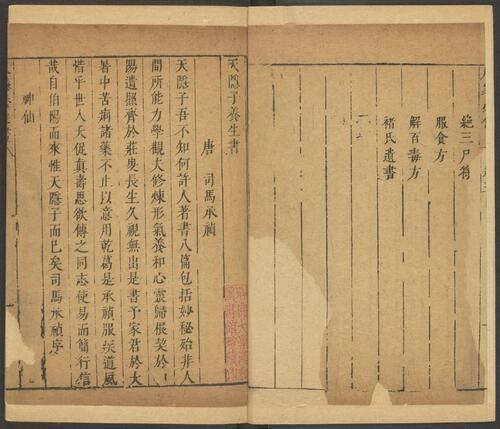 絶三尸符
服食方
解百毒方
褚氏遺書
天隱子養生書
唐 司馬承禎
天隱子吾不知何許人著書八篇包括妙秘殆非人
間所能力學觀夫修煉形氣養和心靈歸根契於
陽遺照齊於莊叟長生久視無出是書予家君於大
暑中苦痢諸藥不止以意用乾葛是承禎服疾道風
惜乎世人夭促真壽思欲傳之同志使易而簡行信
哉自伯陽而來惟天隱子而已矣司馬承禎序
神仙